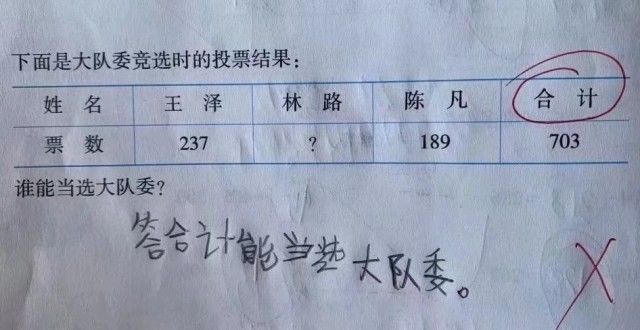 下面是大队委竞选时的投票结果：
姓 名 王 泽 林 路 陈 凡 合 计
票 数 237 ? 189 703
谁能当选大队委？
答合计能当选大队委。